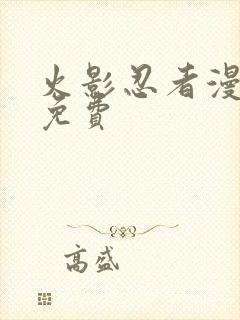 火影忍者漫
免費
高盛